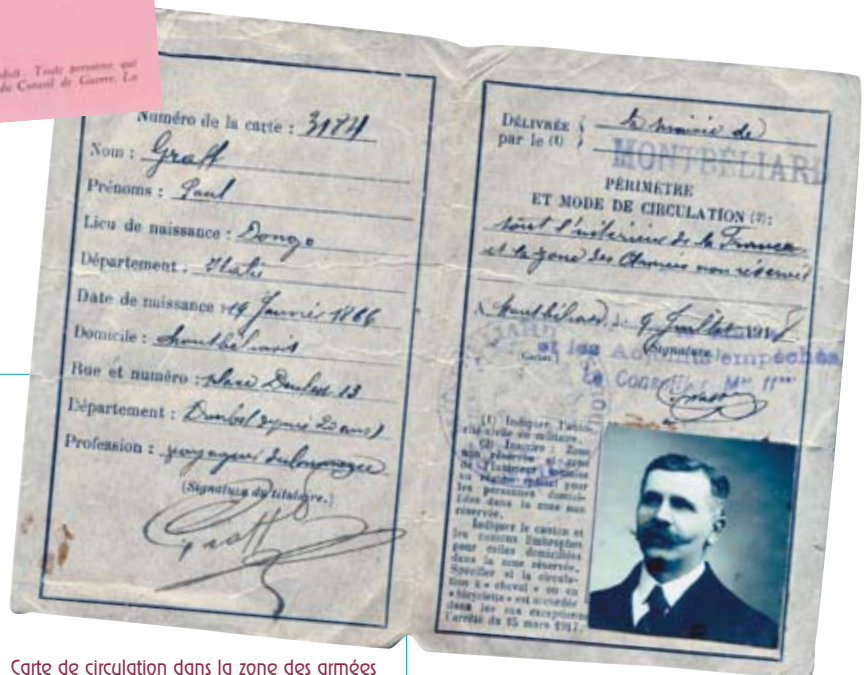 Toute personne qui
du Conseil de Guerre. La
Numéro de la carte : 3184
Nom : Graff
Prénoms : Paul
Lieu de naissance : Dongo
Département : Italie
Date de naissance : 19 Janvier 1866
Domicile : Montbéliard
Rue et numéro : place Denfert 13
Département : Doubs (depuis 20 ans)
Profession : voyageur de commerce
(Signature du titulaire.)
Graff
DÉLIVRÉE par le (1) la mairie de
MONTBÉLIARD
PÉRIMÈTRE
ET MODE DE CIRCULATION (2):
tout l'intérieur de la France
et la zone des Armées non réservée
A Montbéliard, le 9 Juillet 1918
et les Adjoints empêchés
(Cachet.) (Signature.)
Le Conseiller Mal ffons
(1) Indiquer l'auto-
rité civile ou militaire.
(2) Inscrire : Zone
non réservée et zone
de l'intérieur
un régime spécial pour
les personnes domici-
liées dans la zone non
réservée.
Indiquer le canton et
les cantons limitrophes
pour celles domiciliées
dans la zone réservée.
Spécifier si la circula-
tion à « cheval » ou en
« bicyclette » est accordée
dans les cas exceptions
l'arrêté du 15 mars 1917.
Carte de circulation dans la zone des armées